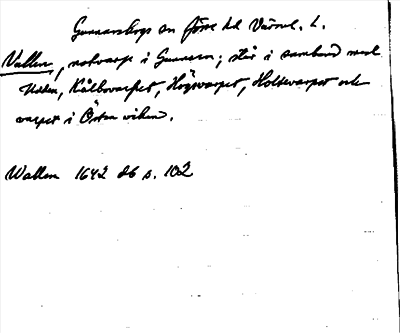 Gunnarskogs sn Jösse hd Värml. l.
Vallen, notvarp i Gunnern; står i samband med
Udden, Kålbovarpet, Högvarpet, Holkevarpet och
varpet i Östra viken.
Wallen 1642 db s. 102